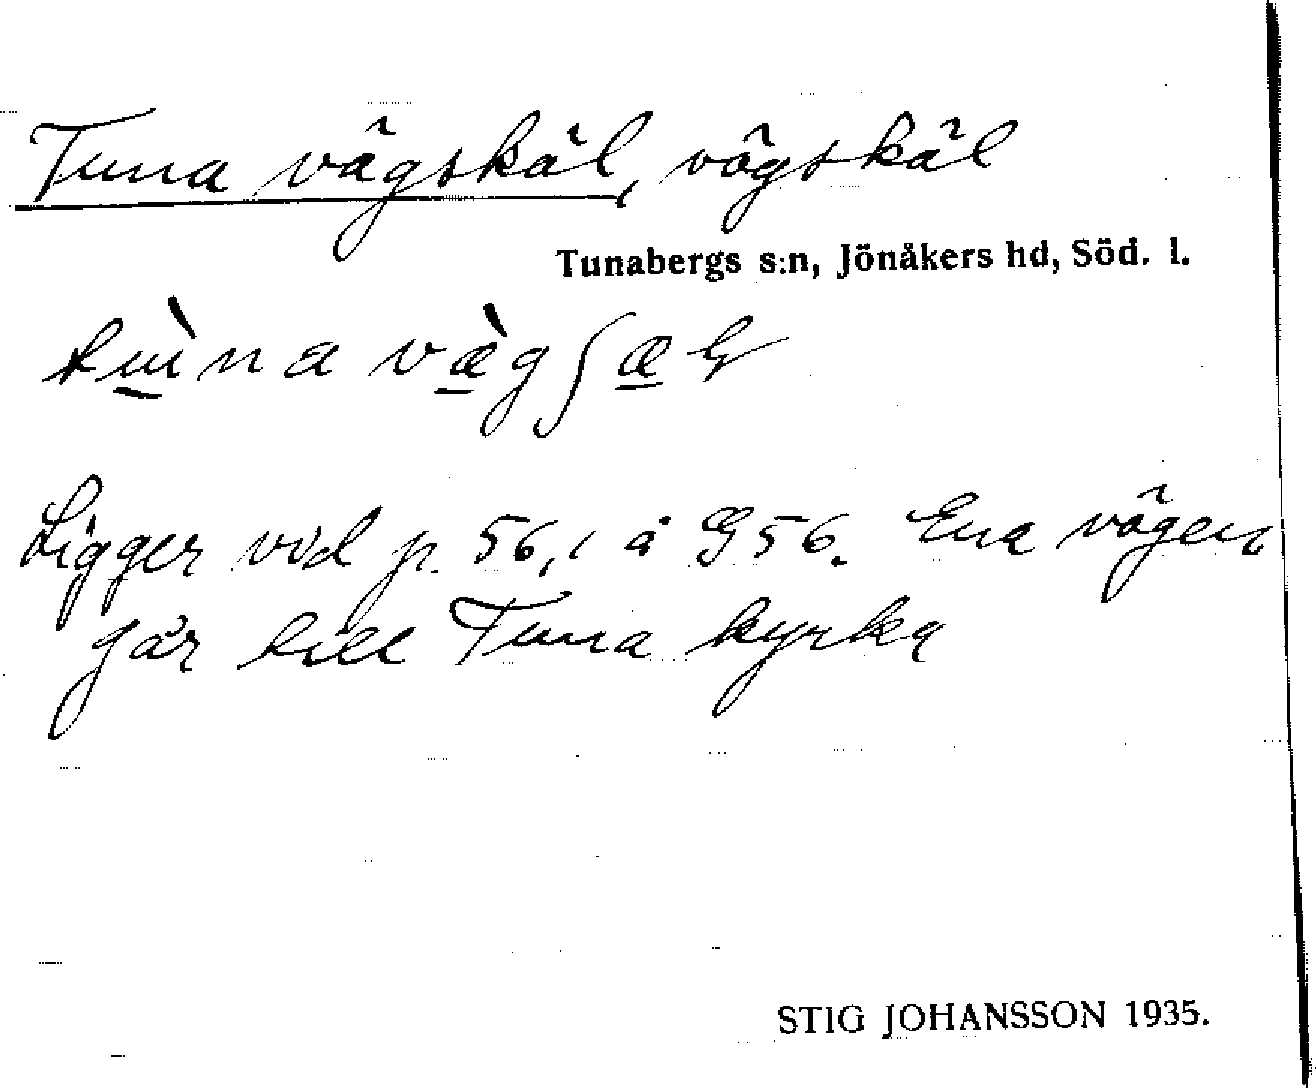 Tuna vägskäl, vägskäl
Tunabergs s:n, Jönåkers hd, Söd. l.
Ligger vid p. 56,1 å G 56. Ena vägen
går till Tuna kyrka
STIG JOHANSSON 1935.